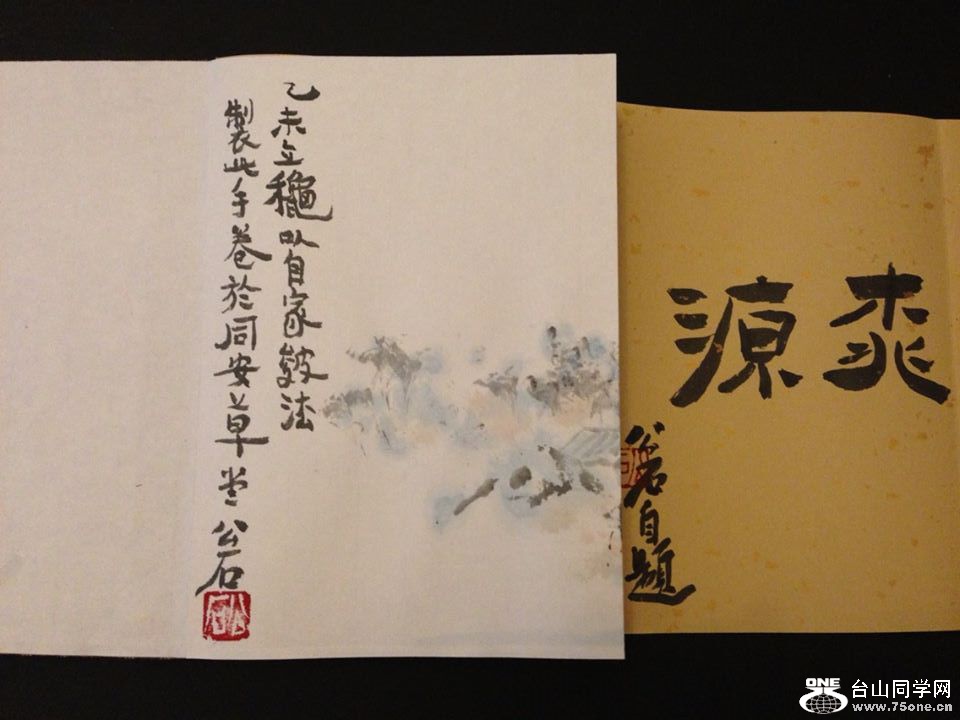 桃源
公石自題
乙未立龝以自家皴法
製此手卷於同安草堂公石
公石
ONE
台山同学网
www.75one.cn